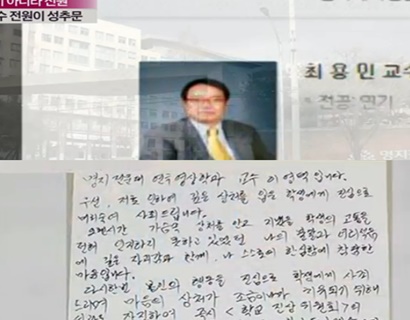 이 아니라 전원
수 전원이 성추문
최용민 교수
전공:연기
명지전문대 연극영상학과 교수 이영택입니다.
우선, 저로 인하여 깊은 상처를 입은 학생에게 진심으로
머리숙여 사죄드립니다.
오랜시간 가슴속 상처를 안고 지냈을 학생의 고통을
전혀 인지하지 못하고 있었던 나의 잘못과 어리석음
에 깊은 자괴감과 함께, 나 스스로의 한심함에 착잡한
마음입니다.
다시한번 본인의 행동을 진심으로 학생에게 사죄
드리며 마음의 상처가 조금이나마 치유되기 위해
자진하여 즉시 <학교 진상 위원회>의